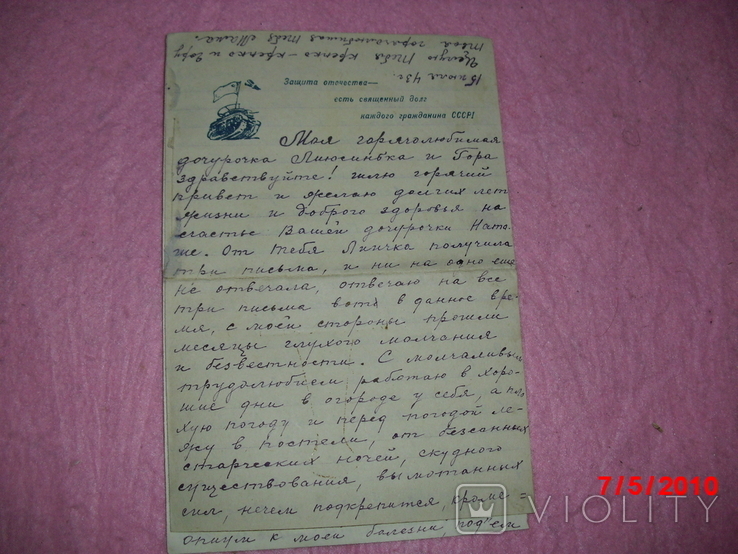 15 июля 43 г.
Целую Тебя крепко-крепко и Гору
Твоя горячолюбимая тебя Мама.
Защита отечества—
есть священный долг
каждого гражданина СССР!
Моя горяголюбимая
дочурочка Люсинька и Гора
здравствуйте! шлю горячий
привет и желаю долгих лет
жизни и доброго здоровья на
счастье Вашей дочурочки Ната-
ше. От тебя Лиичка получила
три письма, и ни на одно еще
не отвечала, отвечаю на все
три письма хотя в данное вре-
мя, с моей стороны прошли
месяцы глухого молчания
и безвестности. С молчаливым
трудолюбием работаю в хоро-
шие дни в огороде у себя, а пло
хую погоду и перед погодой ле-
жу в постели, от безсанных
старческих ночей, скудного
существования, вымотанных
сил, нечем подкрепится, кроме =
опиум к моей болезни, под'ем
7/5/2010
VIOLITY